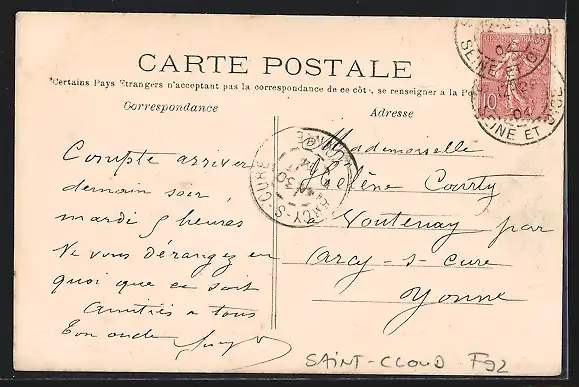 CARTE POSTALE
Certains Pays Etrangers n'acceptant pas la correspondance de ce côté, se renseigner à la Pos
Correspondance
Adresse
Compte arriver
demain soir
mardi 5 heures
Ne vous dérangez en
quoi que ce soit
Amitiés a tous
Ton oncle
Mademoiselle
Hélène Courty
à Voutenay par
Arcy-s-Cure
Yonne
ARCY-S-CURE
YONNE
SEINE ET OISE
SEINE ET OISE
04
10
SAINT-CLOUD F92